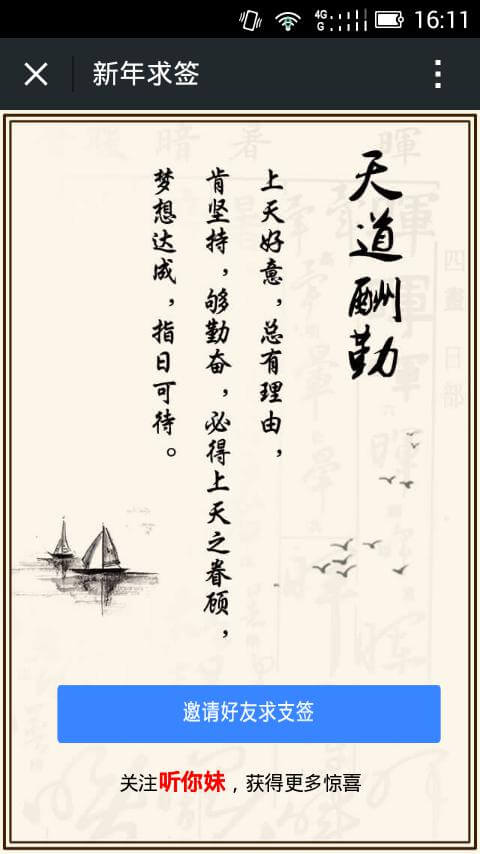 4G
G
16:11
新年求签
天道酬勤
上天好意，总有理由，
肯坚持，够勤奋，必得上天之眷顾，
梦想达成，指日可待。
邀请好友求支签
关注听你妹，获得更多惊喜